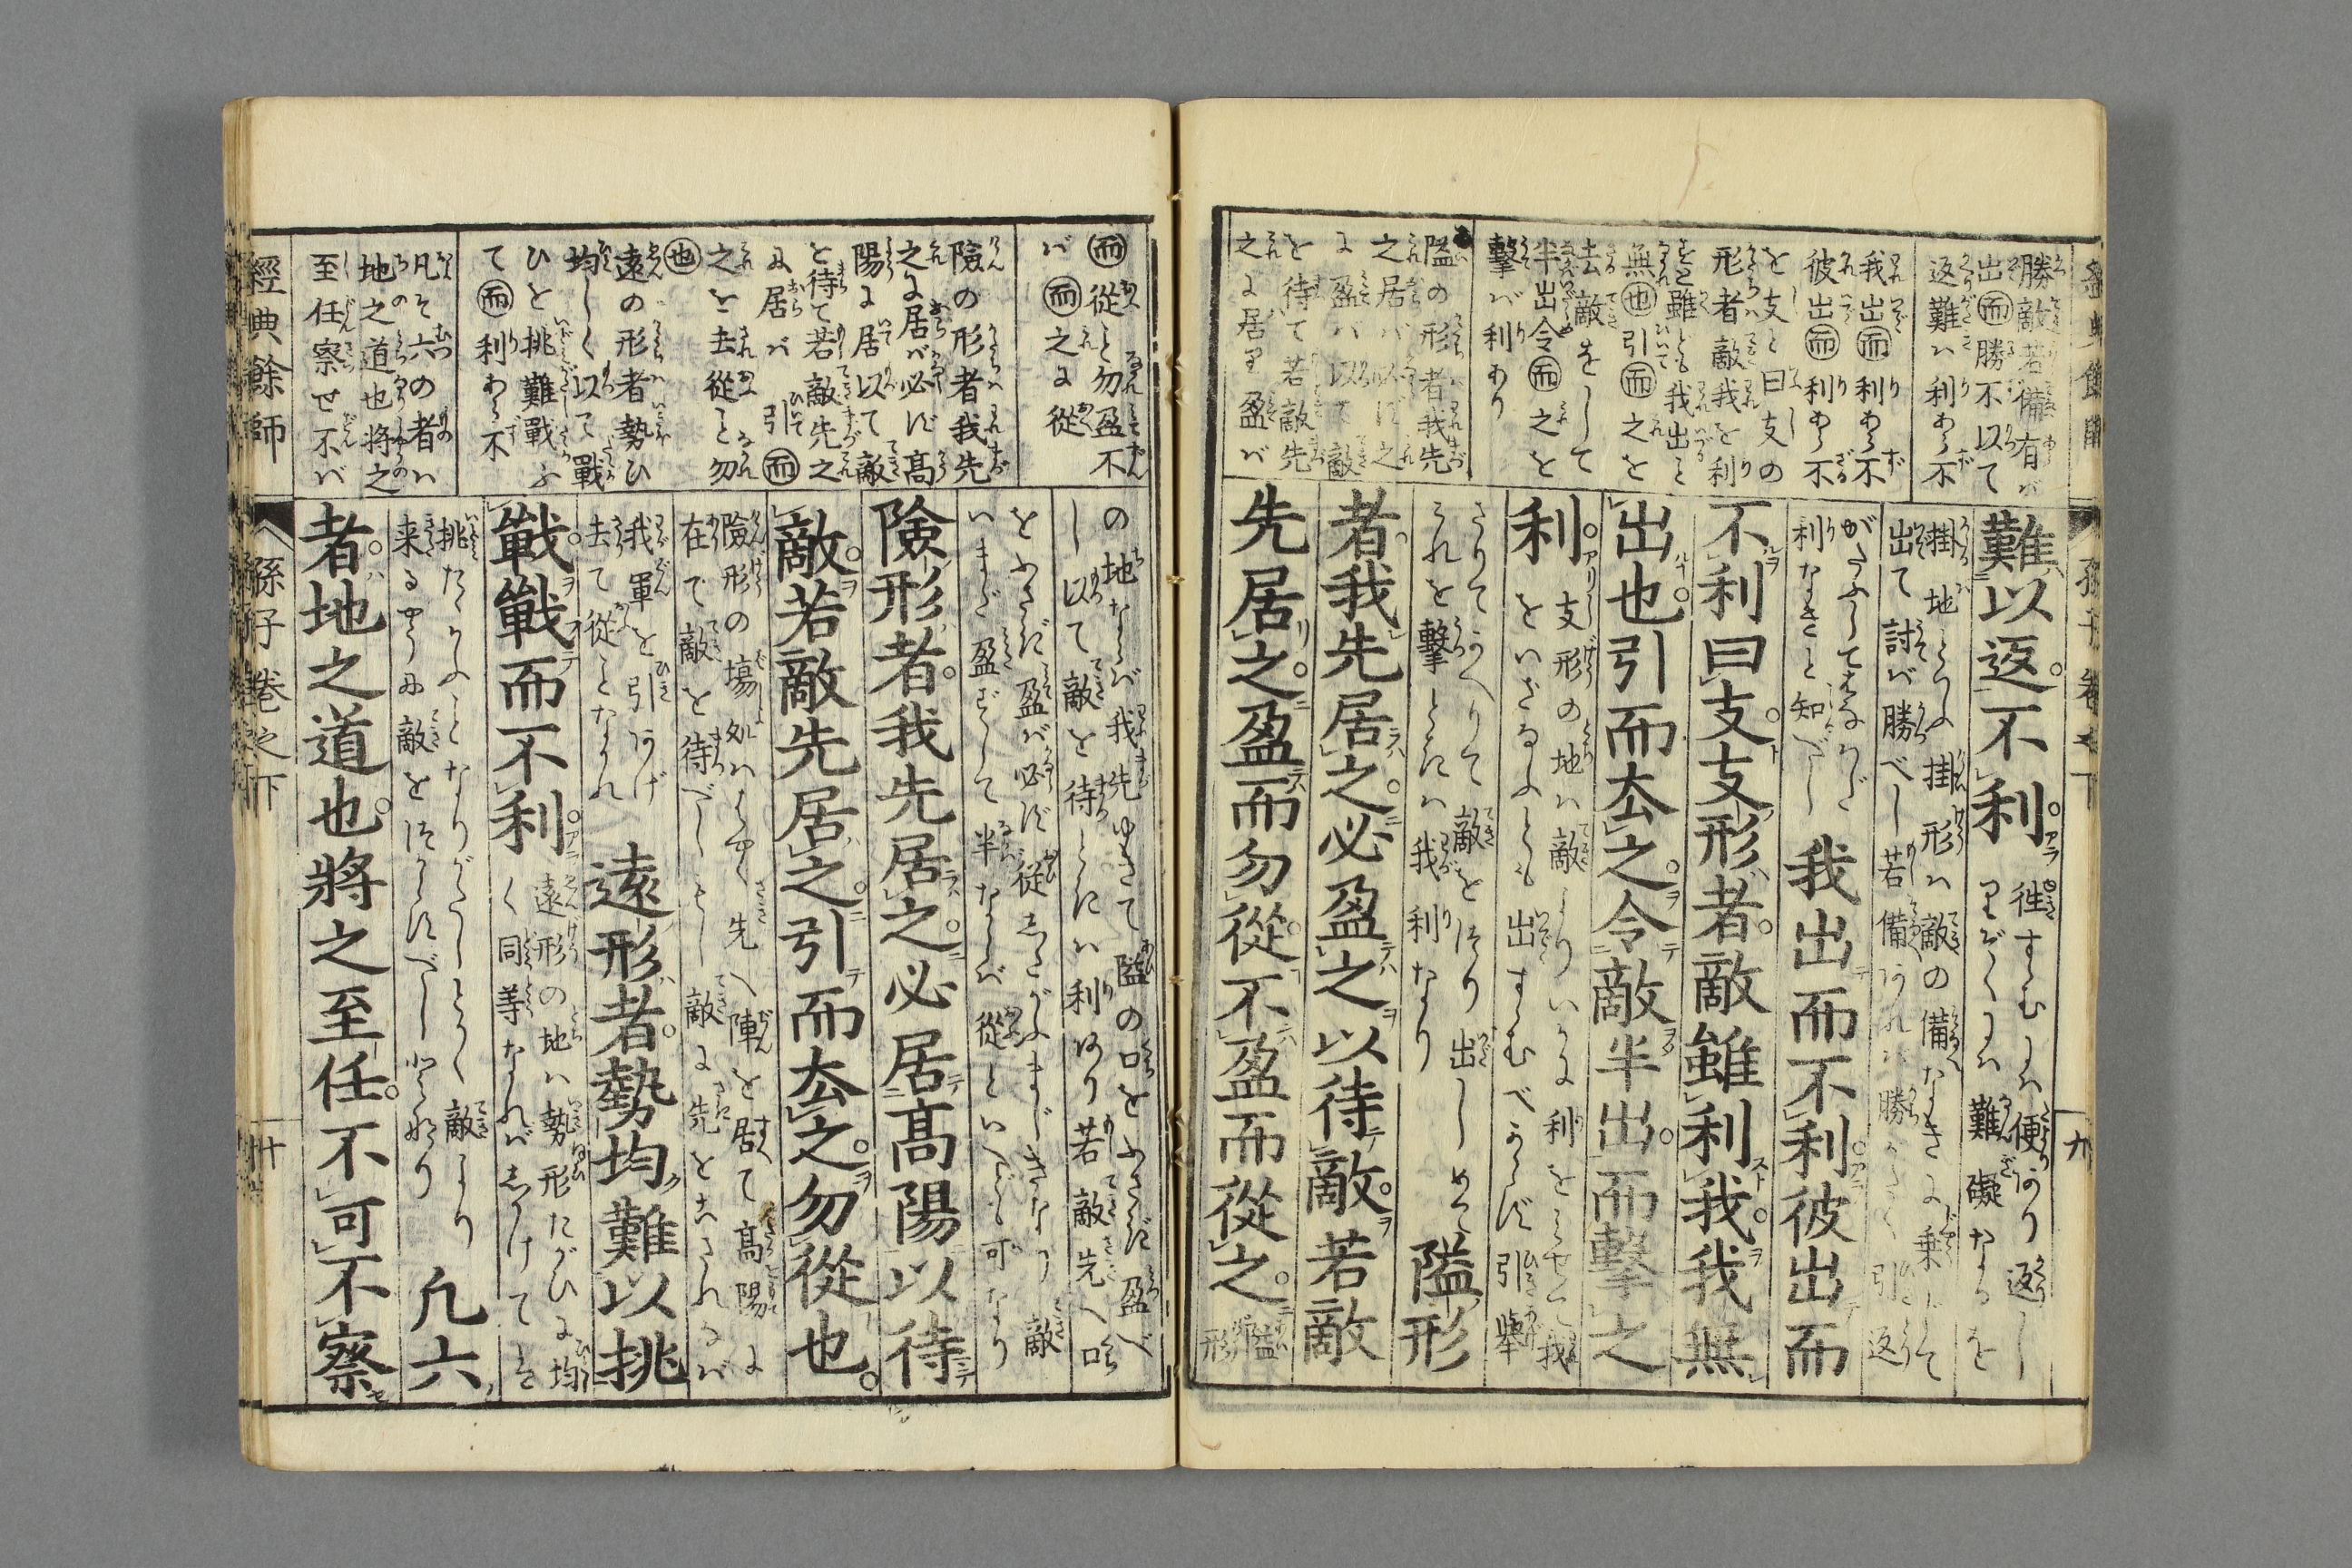 勝敵若備有バ
出而勝不以て
返難ハ利あら不
我出而利あら不
彼出而利あら不
と支と曰支の
形者敵我を利
すと雖とも我出こと
無也引而之を
去敵をして
半出令而之を
撃バ利あり
隘の形者我先
之居バ必ず之
に盈バ以て敵
を待て若敵先
之に居り盈バ
難以返不利
徃すゝむには便あり返し
りぞくには難礙なるを
掛地といふ掛形ハ敵の備なきに乗じて
出て討バ勝べし若備あれバ勝がたく引返
がたふしてはなはだ
利なきと知べし
我出而不利彼出而
不利曰支支形者敵雖利我我無
出也引而去之令敵半出而撃之
利
支形の地ハ敵よりいかに利をみせて我
をいざなふとも出すゝむべからず引挙
さりてかへりて敵をはかり出しめて
これを撃ときハ我利なり
隘形
者我先居之必盈之以待敵若敵
先居之盈而勿從不盈而從之
隘
形
九
而從こと勿盈不
バ而之に從
險の形者我先
之に居バ必ず高
陽に居以て敵
を待て若敵先之
に居バ引而
之を去從こと勿
也
遠の形者勢ひ
均しく以て戰
ひを挑難戰ふ
て而利あら不
凡そ六の者ハ
地之道也將之
至任察せ不バ
の地ならバ我先ゆきて隘の口をふさぎ盈べ
し以て敵を待ときハ利あり若敵先へ口
をふさぎ盈バ必ず從したがふまじきなり敵
いまだ盈ずして半ならバ從といへども可なり
險形者我先居之必居高陽以待
敵若敵先居之引而去之勿從也
險形の塲処ハはやく先へ陣を居て高陽に
在て敵を待べしもし敵に先をこされなバ
我軍を引あげ
去て從ことなかれ
遠形者勢均難以挑
戰戰而不利
遠形の地ハ勢形たがひに均
く同等なれバしかけてた
挑たゝかふことなりがたしとかく敵より
来るやうに敵をはかるべし
凡六
者地之道也將之至任不可不察
經典餘師
孫子巻之下
十